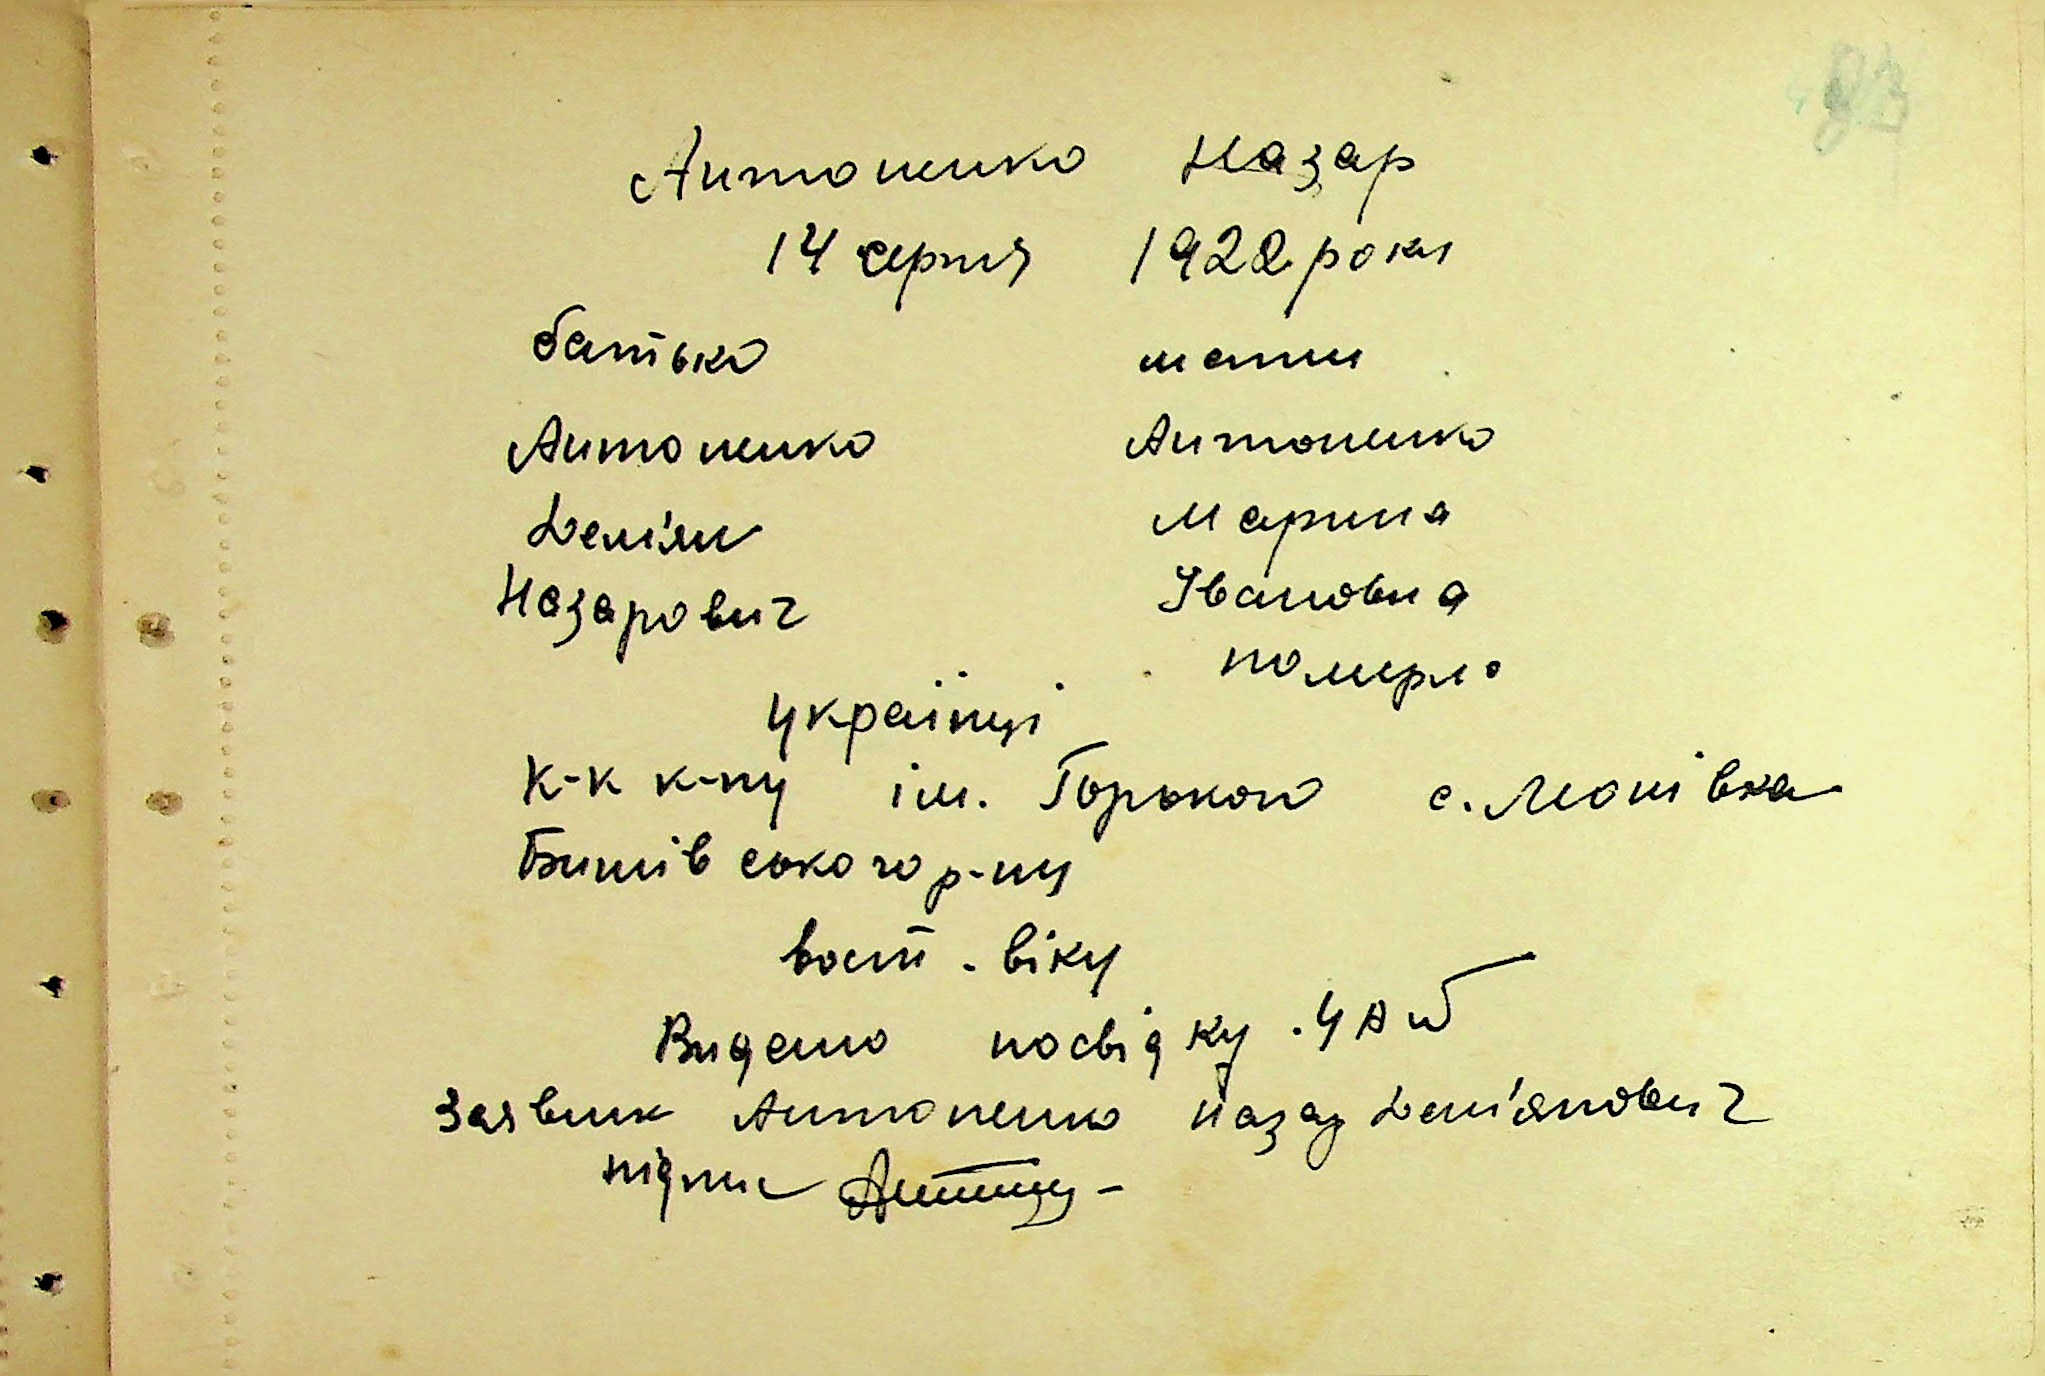 Антоненко Назар
14 серпня 1922 року
батько мати
Антоненко Антоненко
Дем'ян Марина
Назарович Івановна
померла
українці
к-к к-пу ім. Горького с. Мотнівка
р-ну
вост. віку
Видано посвідку
Заявник Антоненко Назар Дем'янович
підпис